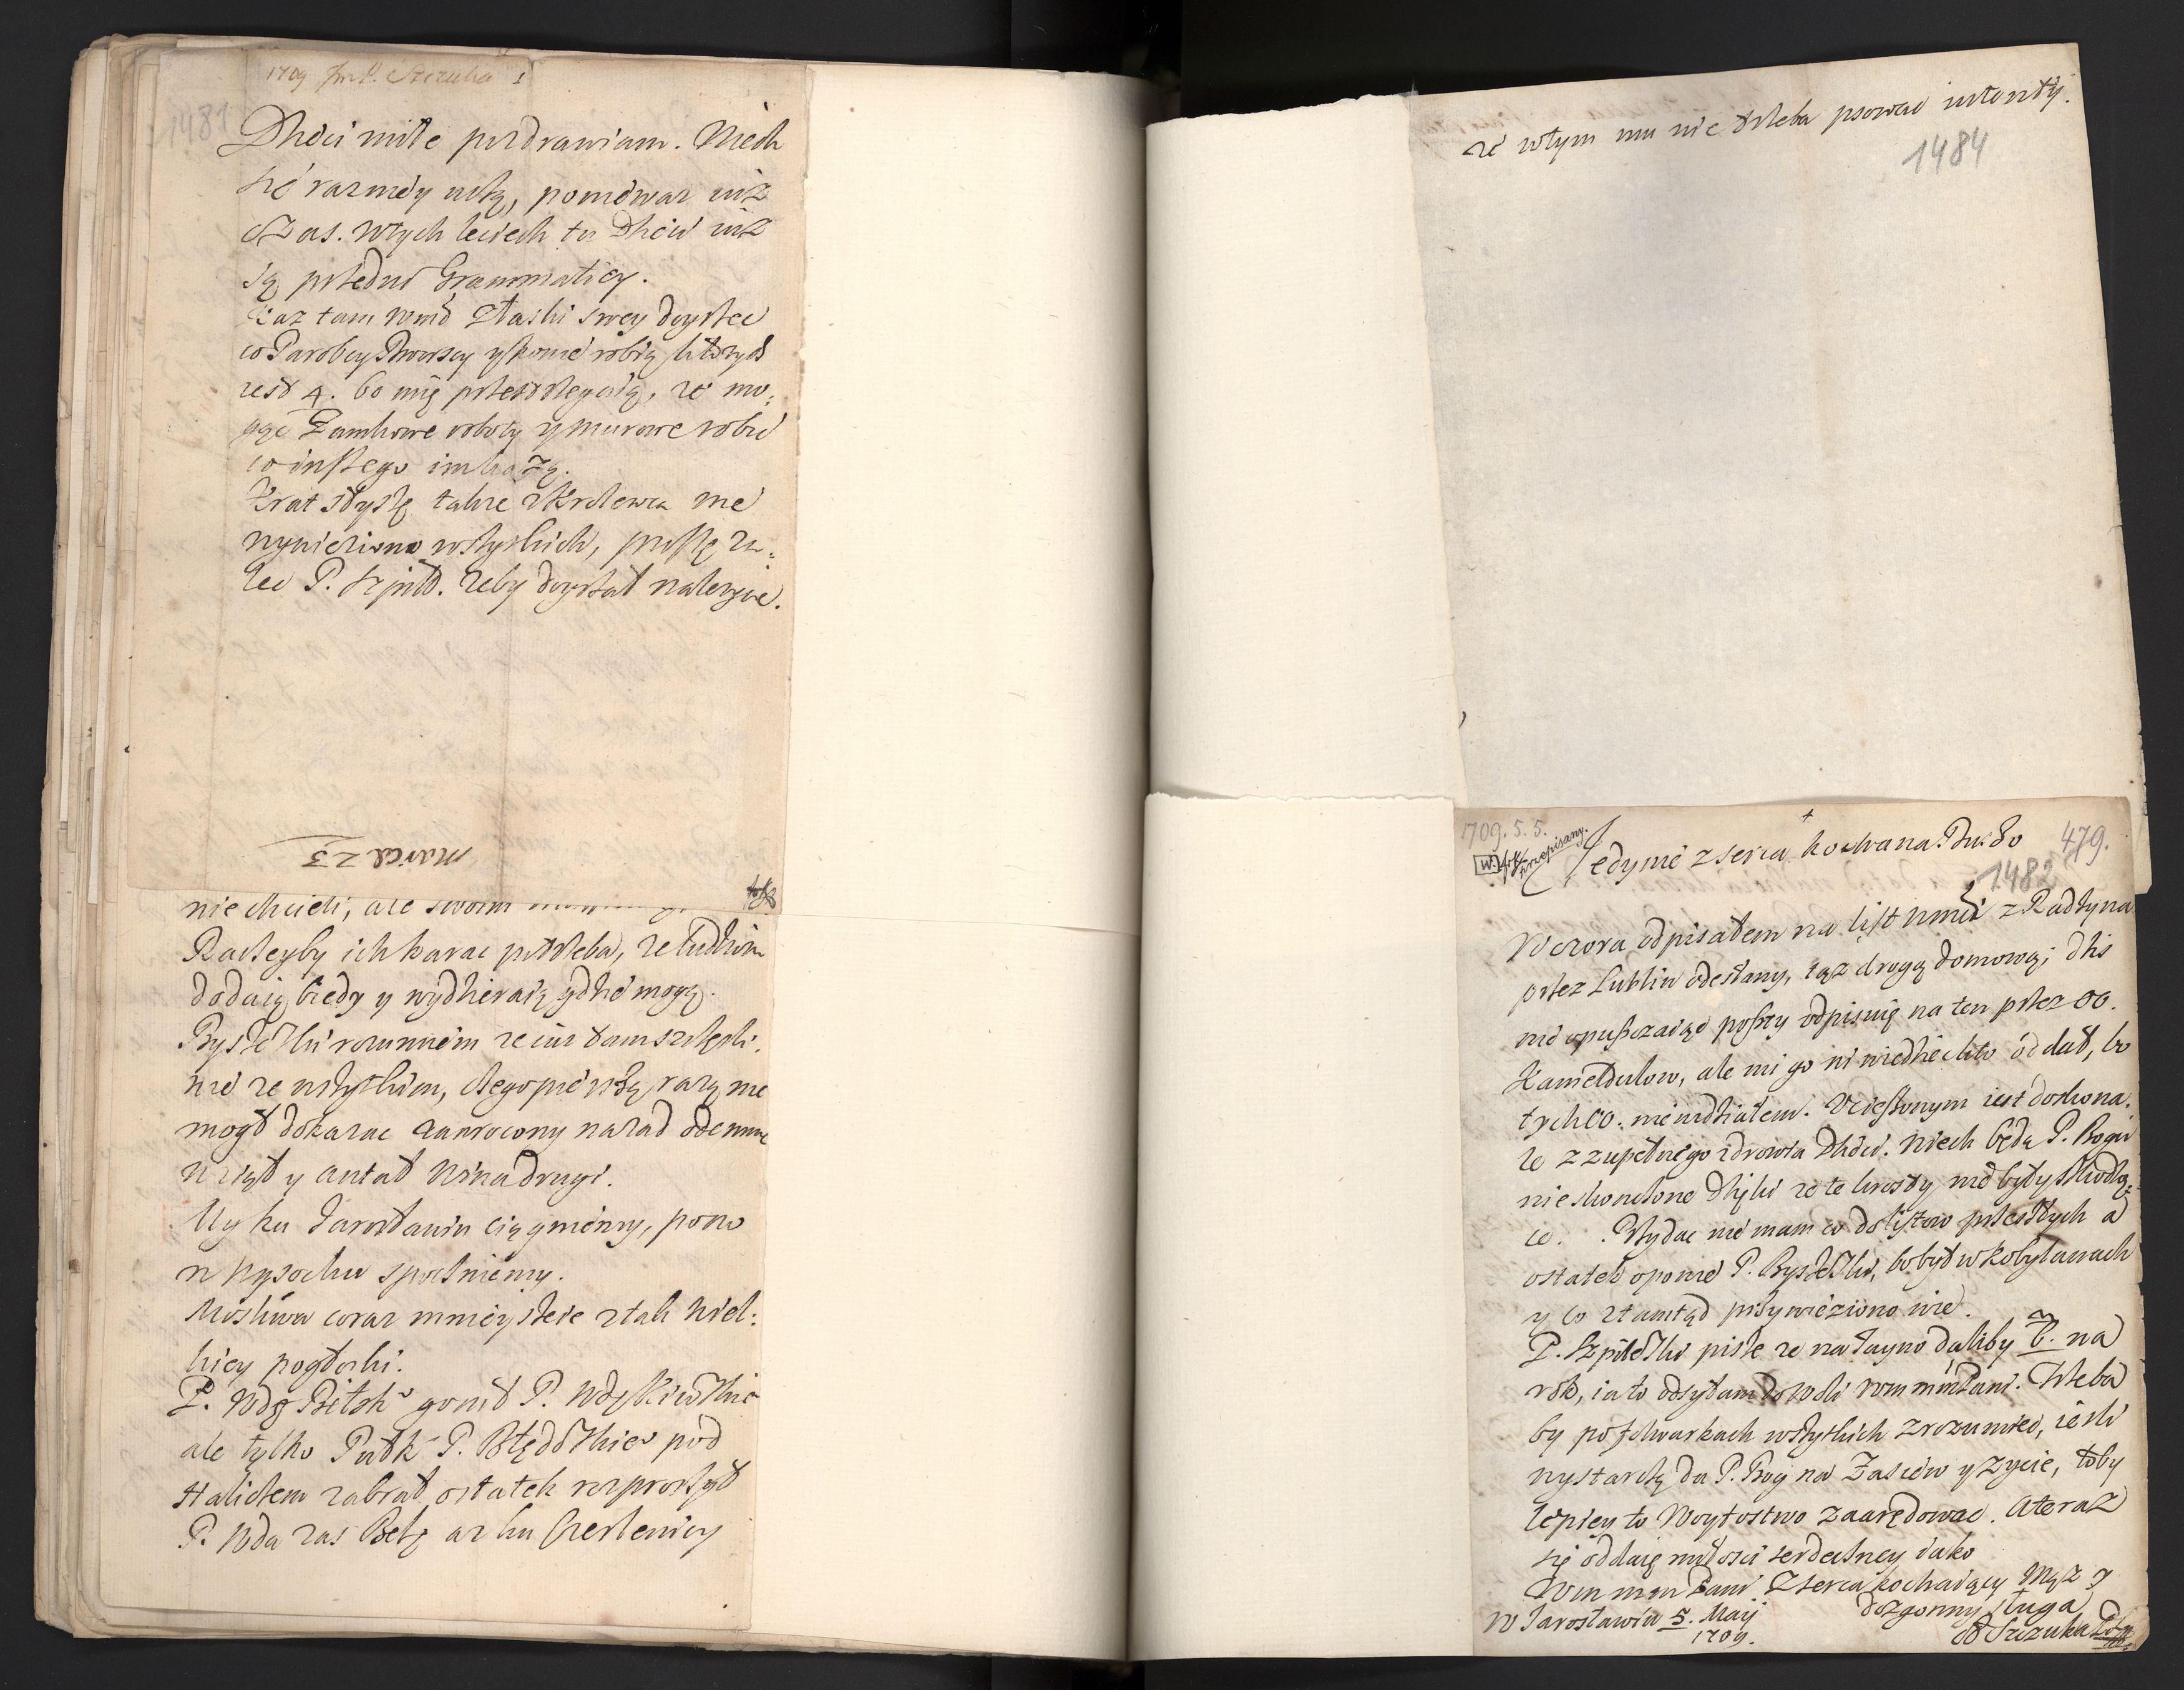 1709 Im P. Szczuka
1481
Dzieci miłe pozdrawiam. Niech
się raźniey uczą, poniewaz iuż
czas. Wtych leciech tu Dzieci iuż
są przedni Grammaticy.
kaz tam wmć złaski swey doyrzec
co Parobcy Dworscy y konie robią ktorych
iest 4. bo mię przestrzegaią, ze mo:
gąc Zamkowe roboty y murowe robić
co inszego im każą.
Krat słyszę także z Krolewca nie
wywieziono wszytkich, proszę za:
lec P. Szpild. żeby doyrzał należycie.
Marca 23
nie chcieli, ale swoim
Raczeyby ich karac potrzeba, ze ludziom
dodaią biedy y wydzieraią gdzie mogą.
Bystrzycki rozumiem ze iuz tam szczęśli:
wie ze wszytkim, czego pierwszą razą nie
mogł dokazac zawrocony nazad odemnie
wziął y antał wina drugi.
My ku Jarosławiu ciągniemy, pono
w Wysocku spoczniemy.
Moskwa coraz mnieysza z tak wiel:
kiey pogłoski.
P. Wdę Bełzk gonił P.
ale tylko Pułk P. pod
Haliczem zabrał ostatek rozproszył
P. Wda zas Bełz az ku
ze wtym mu nie trzeba psowac intraty.
1484
1709. 5. 5.
W. przepisany.
479.
Jedynie z serca kochana Duszo
1482
Wczora odpisałem na list wmći z Radzyna
przez Lublin odesłany, tąż drogą domową; dziś
nie opuszczaiąc poszty odpisuię na ten przez OO.
Kamedułow, ale mi go ni wiedzieć kto oddał, bo
tych OO. nie widziałem. Ucieszonym iest doskona:
le z zupełnego zdrowia Dzieci. Niech będą P. Bogu
nieskonczone dzięki ze te krosty nie były szkodlą:
ce. Wydac nie mam co do listow przeszłych a
ostatek oponie P. Bystrzycki, bo był w Kobylanach
y co ztamtąd przywieziono wie.
P. Szpilewski pisze ze na Łayno daliby na
rok, ia to odsyłam do woli wm mm Pani. Trzeba
by po folwarkach wszytkich zrozumiec, ieśli
wystarczą da P. Bog na Zasiew y życie, toby
lepiey to Woytostwo zaarędowac. A teraz
się oddaię miłosci serdeczney iako
Wm mm Pani Z serca kochaiący Mąż y
dozgonny sługa
w Jarosławiu 5. Maij
1709.
S Szczuka